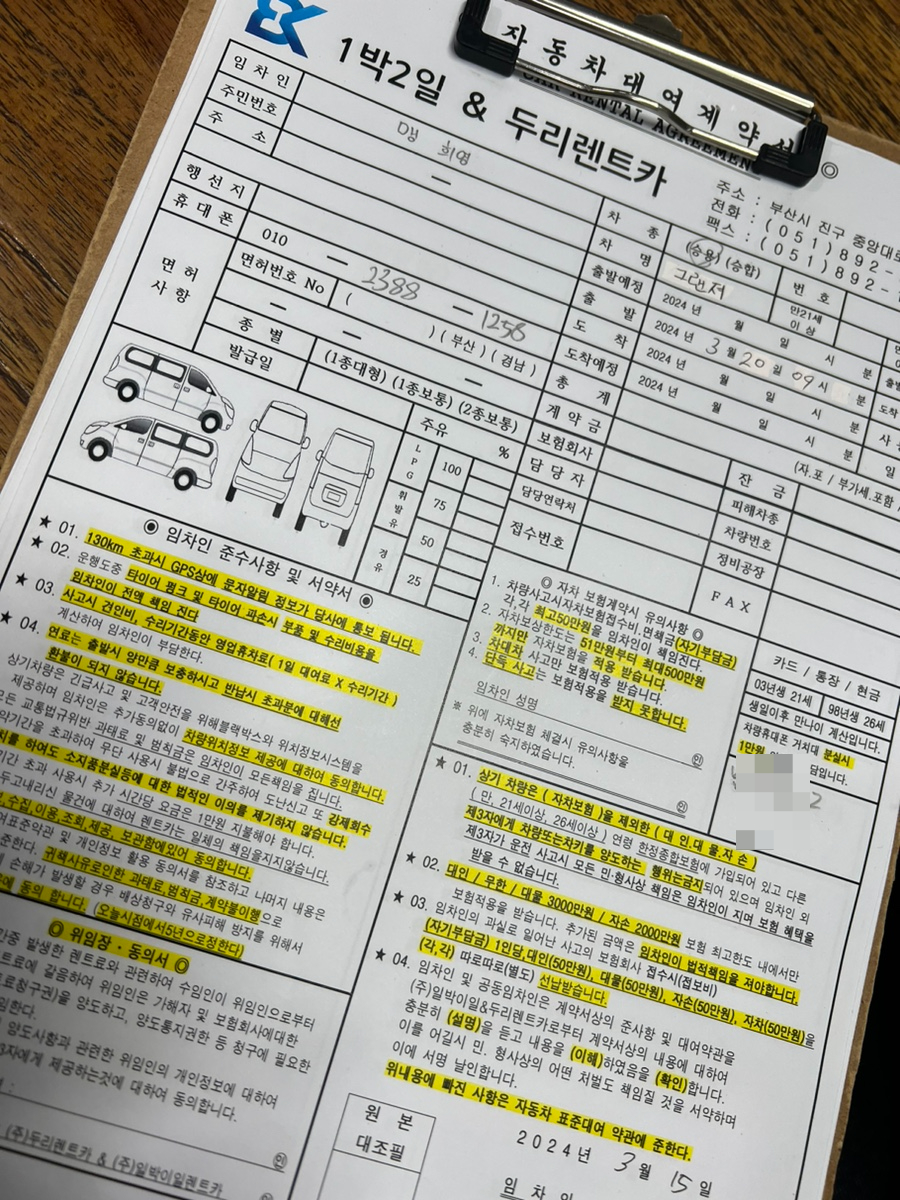 EK
자 동 차 대 여 계 약 서
CAR RENTAL AGREEMENT
1박2일 & 두리렌트카
주소 : 부산시 진구 중앙대로
전화 : (051)892-
팩스 : (051)892-
임 차 인
맹 희영
주민번호
주 소
행 선 지
휴 대 폰
010 - 2388 - 1258
면 허
사 항
면허번호 No
( ) (부산) (경남)
종 별
(1종대형) (1종보통) (2종보통)
발급일
차 종
(승용) (승합)
차 명
그랜저
번 호
만21세
이 상
출발예정
2024 년 월 일 시
출 발
2024 년 3 월 20 일 09 시 분
도 착
2024 년 월 일 시 분
도착예정
2024 년 월 일 시 분
총 계
(자.포 / 부가세.포함
계 약 금
잔 금
보험회사
피해차종
담 당 자
차량번호
담당연락처
정비공장
접수번호
F A X
주유 %
L P G
휘 발 유
경 유
100
75
50
25
◉ 임차인 준수사항 및 서약서 ◉
★ 01. 130km 초과시 GPS상에 문자알림 정보가 당사에 통보 됩니다.
★ 02. 운행도중 타이어 펑크 및 타이어 파손시 부품 및 수리비용을
임차인이 전액 책임 진다
★ 03. 사고시 견인비, 수리기간동안 영업휴차료( 1일 대여료 X 수리기간 )
계산하여 임차인이 부담한다.
★ 04. 연료는 출발시 양만큼 보충하시고 반납시 초과분에 대해선
환불이 되지 않습니다.
상기차량은 긴급사고 및 고객안전을 위해블랙박스와 위치정보시스템을
제공하며 임차인은 추가동의없이 차량위치정보 제공에 대하여 동의합니다.
모든 교통법규위반 과태료 및 범칙금은 임차인이 모든책임을 집니다.
약기간을 초과하여 무단 사용시 불법으로 간주하여 도난신고 또 강제회수
치를 하여도 소지품분실등에 대한 법적인 이의를 제기하지 않습니다.
기간 초과 사용시 추가 시간당 요금은 1만원 지불해야 합니다.
두고내리신 물건에 대하여 렌트카는 일체의 책임을지지않습니다.
수집,이용,조회,제공, 보관함에있어 동의합니다.
여표준약관 및 개인정보 활용 동의서를 참조하고 나머지 내용은
준한다. 귀책사유로인한 과태료,범칙금,계약불이행으로
손해가 발생할 경우 배상청구와 유사피해 방지를 위해서
동의 합니다. (오늘시점에서5년으로정한다)
◎ 위임장 · 동의서 ◎
간중 발생한 렌트료와 관련하여 수임인이 위임인으로부터
트료에 갈음하여 위임인은 가해자 및 보험회사에대한
료청구권)을 양도하고, 양도통지권한 등 청구에 필요한
임한다.
양도사항과 관련한 위임인의 개인정보에 대하여
3자에게 제공하는것에 대하여 동의합니다.
인
(주)두리렌트카 & (주)일박이일렌트카
◎ 자차 보험계약시 유의사항 ◎
1. 차량사고시자차보험접수비.면책금(자기부담금)
각,각 최고50만원을 임차인이 책임진다.
2. 자차보상한도는 51만원부터 최대500만원
까지만 자차보험을 적용 받습니다.
3. 차대차 사고만 보험적용 받습니다.
4. 단독 사고는 보험적용을 받지 못합니다.
임차인 성명 인
※ 위에 자차보험 체결시 유의사항을
충분히 숙지하였습니다. 인
카드 / 통장 / 현금
03년생 21세 98년생 26세
생일이후 만나이 계산입니다.
차량휴대폰 거치대 분실시
1만원
담입니다.
2
★ 01. 상기 차량은 ( 자차보험 )을 제외한 ( 대.인.대.물.자.손 )
( 만, 21세이상, 26세이상 ) 연령 한정종합보험에 가입되어 있고 다른
제3자에게 차량또는차키를양도하는 행위는금지되어 있으며 임차인 외
제3자가 운전 사고시 모든 민·형사상 책임은 임차인이 지며 보험 혜택을
받을 수 없습니다.
★ 02. 대인 / 무한 / 대물 3000만원 / 자손 2000만원 보험 최고한도 내에서만
보험적용을 받습니다. 추가된 금액은 임차인이 법적책임을 져야합니다.
★ 03. 임차인의 과실로 일어난 사고의 보험회사 접수시(접보비)
(자기부담금) 1인당,대인(50만원), 대물(50만원), 자손(50만원), 자차(50만원)을
(각, 각) 따로따로(별도) 선납받습니다.
★ 04. 임차인 및 공동임차인은 계약서상의 준사항 및 대여약관을
(주)일박이일&두리렌트카로부터 계약서상의 내용에 대하여
충분히 (설명)을 듣고 내용을 (이해)하였음을 (확인)합니다.
이를 어길시 민. 형사상의 어떤 처벌도 책임질 것을 서약하며
이에 서명 날인합니다.
위내용에 빠진 사항은 자동차 표준대여 약관에 준한다.
원 본
대조필
2024년 3 월 15 일
임 차 인